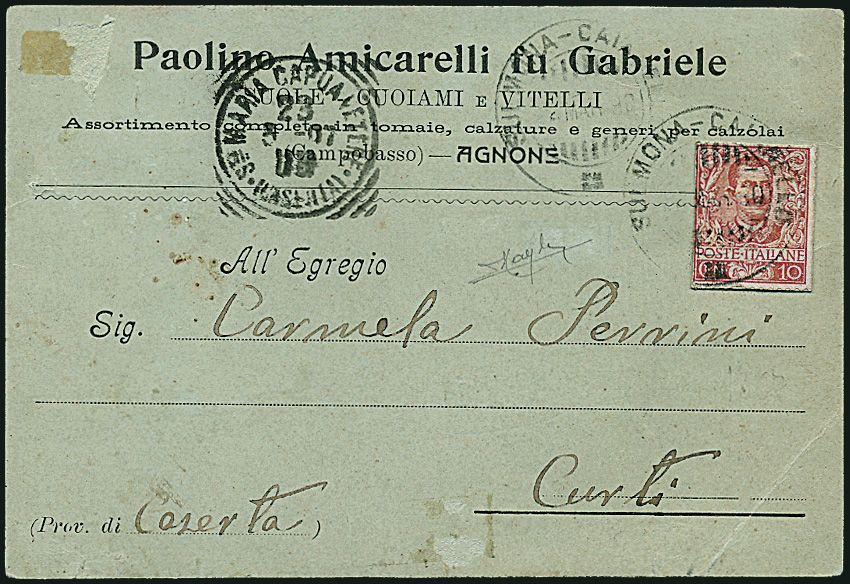 Paolino Amicarelli fu Gabriele
SUOLE - CUOIAMI E VITELLI
Assortimento completo in tomaie, calzature e generi per calzolai
(Campobasso) — AGNONE
S. MARIA CAPUA VETERE
23
SULMONA-CAI
SULMONA-CA
POSTE·ITALIANE
10
All' Egregio
Sig. Carmela Perrini
Curti
(Prov. di Caserta)